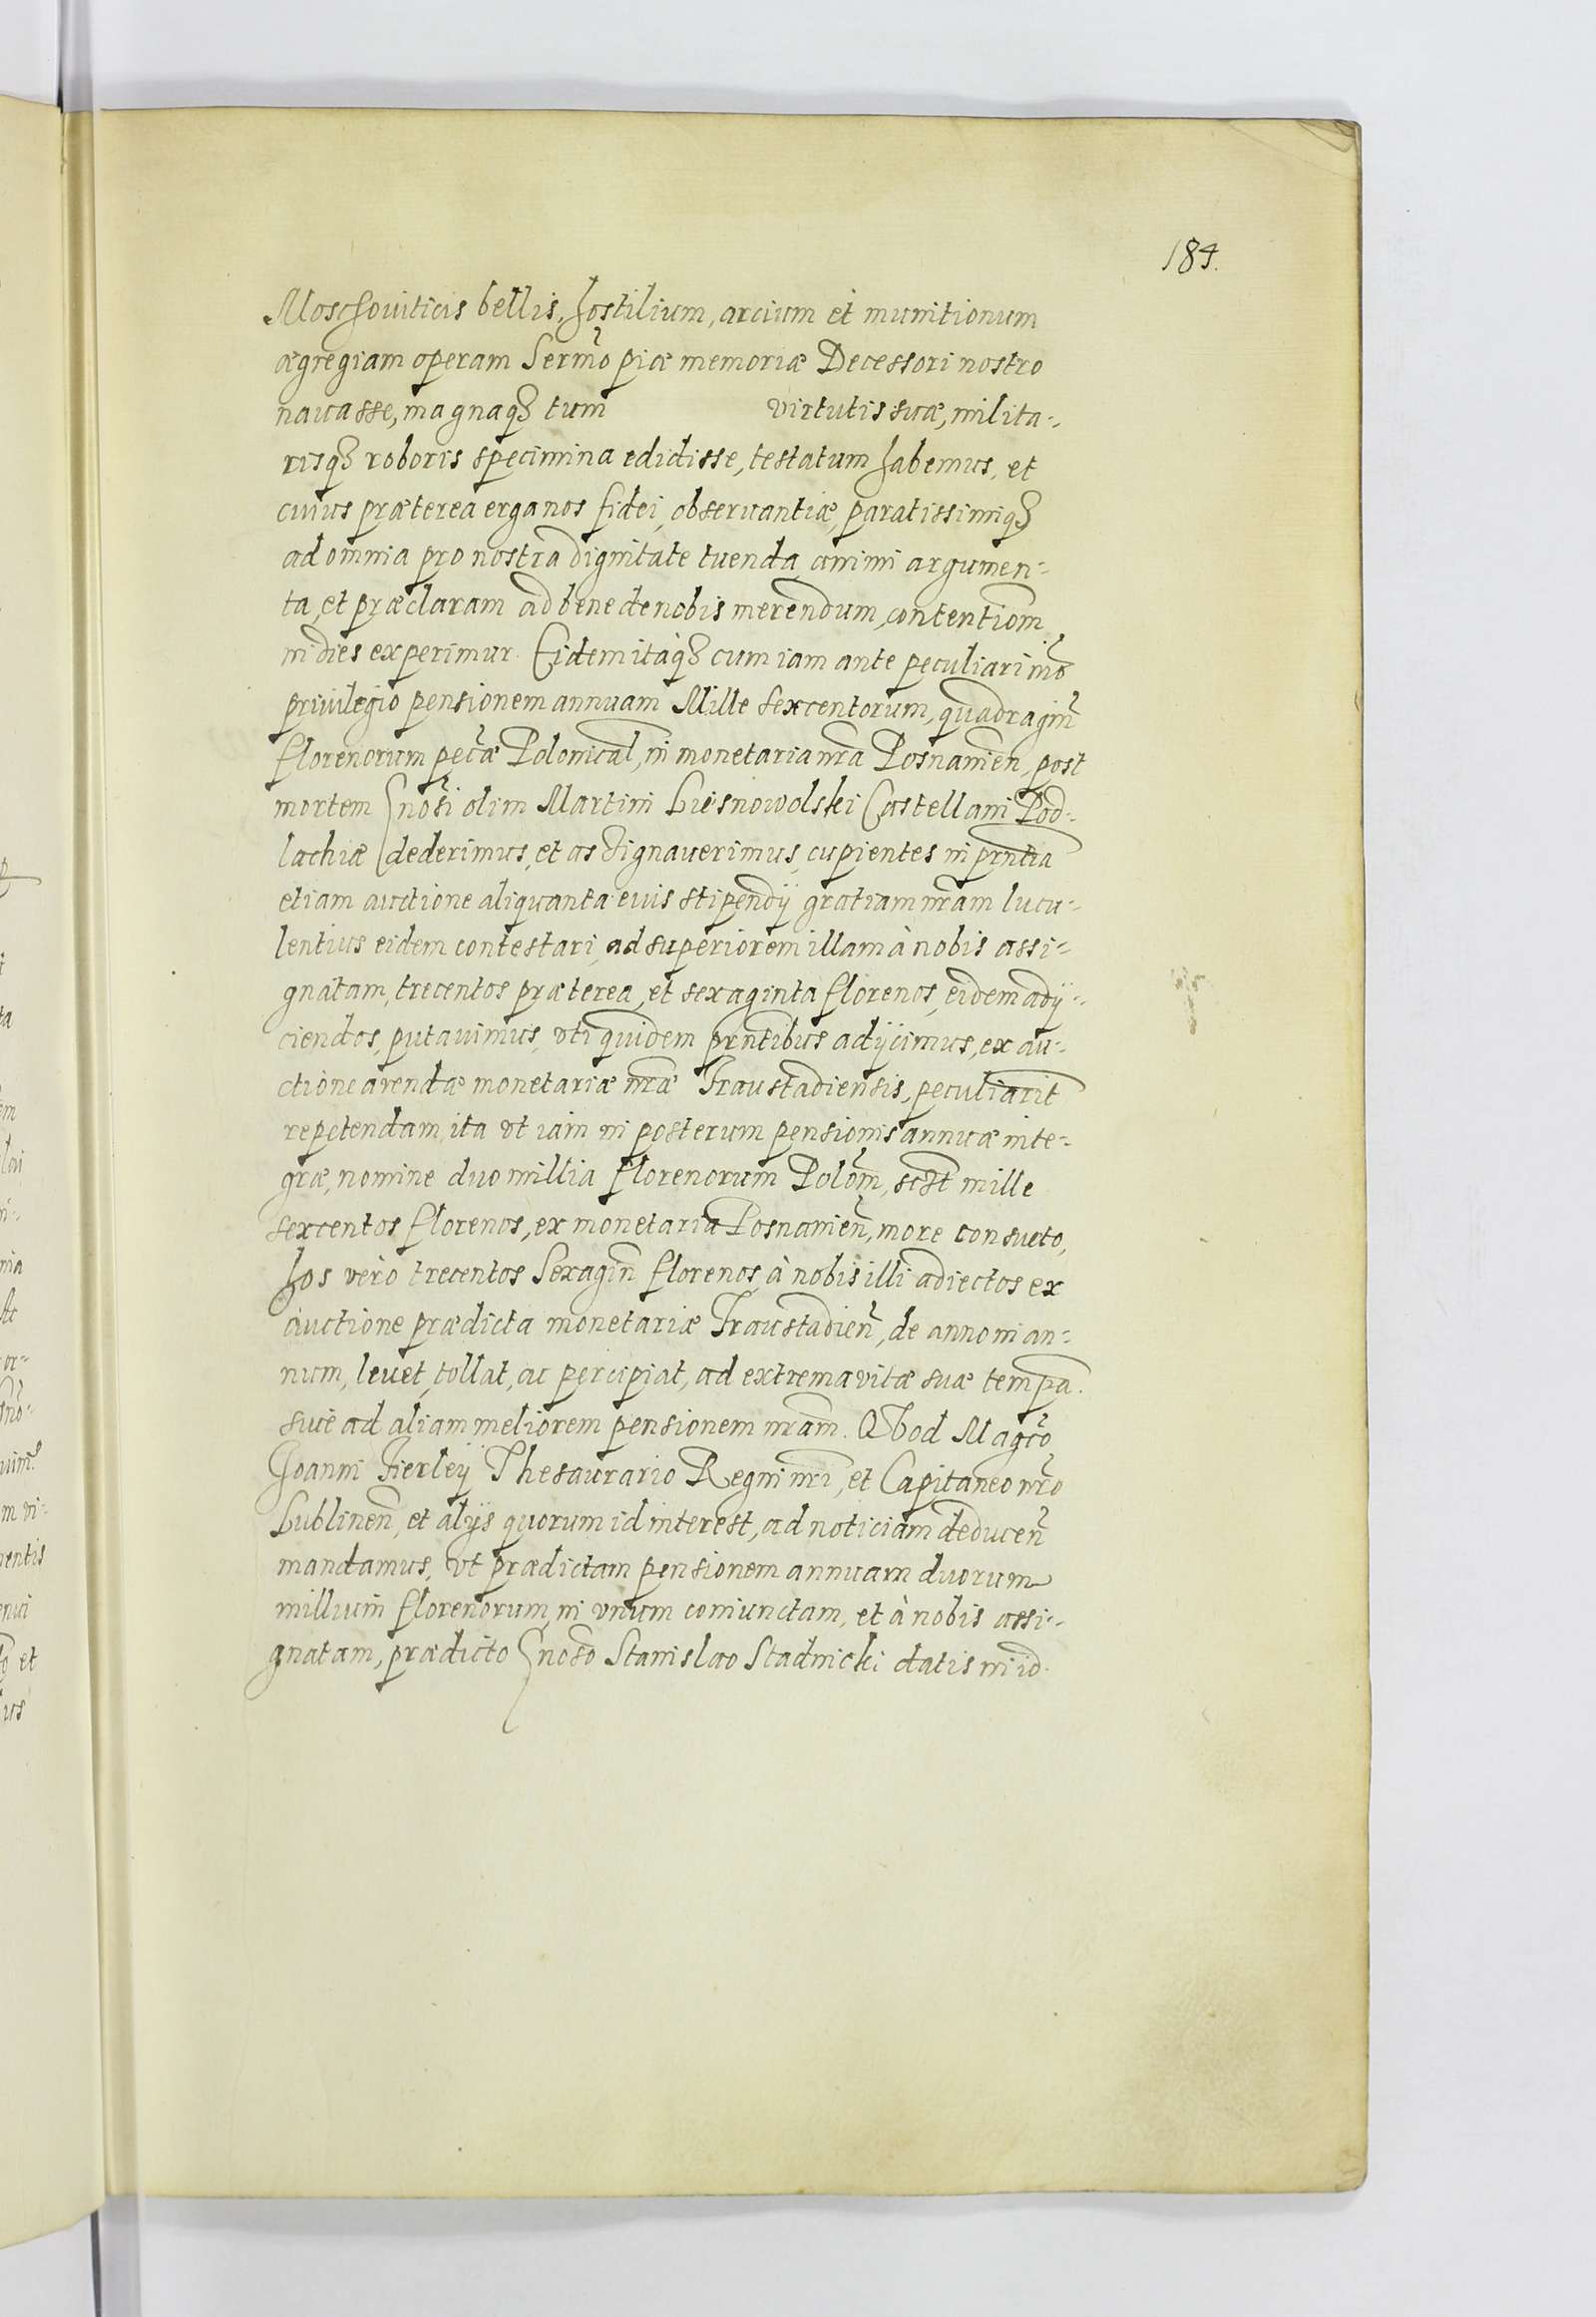 184.
Moschouiticis bellis, hostilium, arcium et munitionum
ægregiam operam Sermo piæ memoriæ Decessori nostro
nauasse, magnaqȝ tum virtutis suæ, milita-
risqȝ roboris specimina edidisse, testatum habemus, et
cuius præterea erga nos fidei, obseruantiæ, paratissimiqȝ
ad omnia pro nostra dignitate tuenda animi argumen-
ta, et præclaram ad bene de nobis merendum, contentiom
in dies experimur. Eidem itaqȝ cum iam ante peculiari
priuilegio pensionem annuam Mille sexcentorum, quadragin
florenorum pecæ Polonical, in monetaria nra Posnanien, post
mortem Gnosi olim Martini Liesnowolski Castellani Pod-
lachiæ dederimus, et assignauerimus, cupientes in prntia
etiam auctione aliquanta eius stipendij gratiam nram lucu-
lentius eidem contestari, ad superiorem illam à nobis assi-
gnatam, trecentos præterea, et sexaginta florenos, eidem adij-
ciendos, putauimus, vti quidem prntibus adijcimus, ex au-
ctione arendæ monetariæ nræ Fraustadiensis, peculiarit
repetendam, ita vt iam in posterum pensionis annuæ inte-
græ, nomine duo millia florenorum Polom, sclt mille
sexcentos florenos, ex monetaria Posnanien, more consueto,
hos vèro trecentos Sexagin florenos, à nobis illi adiectos ex
auctione prædicta monetariæ Fraustadien, de anno in an-
num, leuet, tollat, ac percipiat, ad extrema vitæ suæ tempa.
siue ad aliam meliorem pensionem nram. Qvod Magco
Joanni Fierleÿ Thesaurario Regni nri, et Capitaneo nro
Lublinen, et alijs quorum id interest, ad noticiam deducen
mandamus, vt prædictam pensionem annuam duorum
millium florenorum, in vnum coniunctam, et à nobis assi-
gnatam, prædicto Gnoso Stanislao Stadnicki datis in id